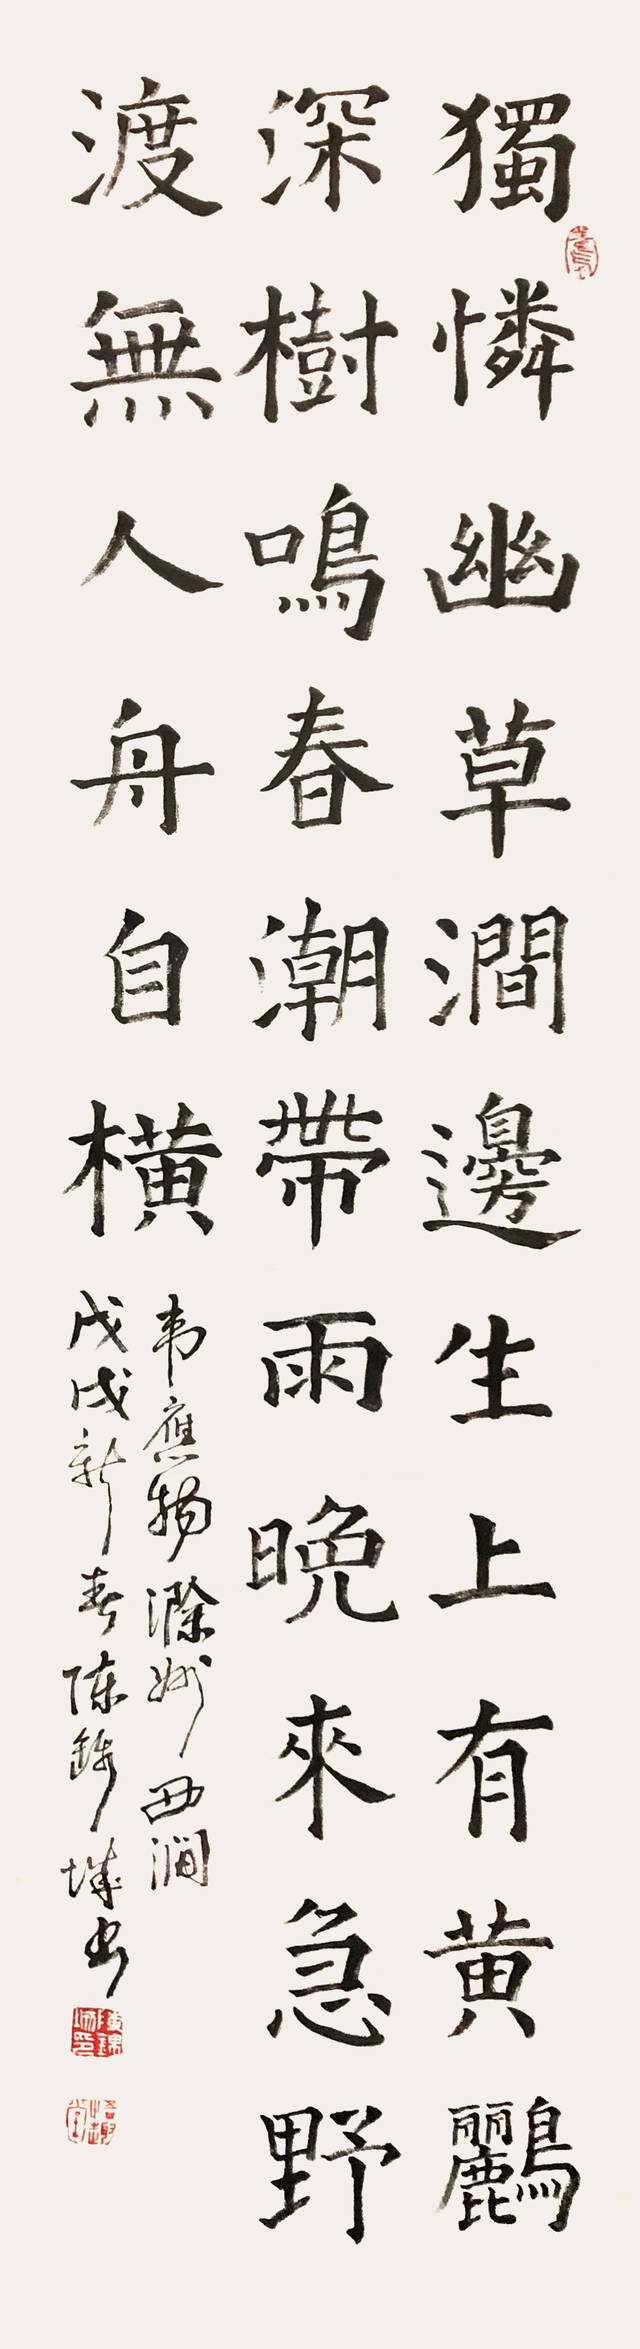 獨憐幽草澗邊生上有黄鸝
深樹鳴春潮帶雨晚來急野
渡無人舟自橫
韦應物滁州西澗
戊戌新春陈錦城书